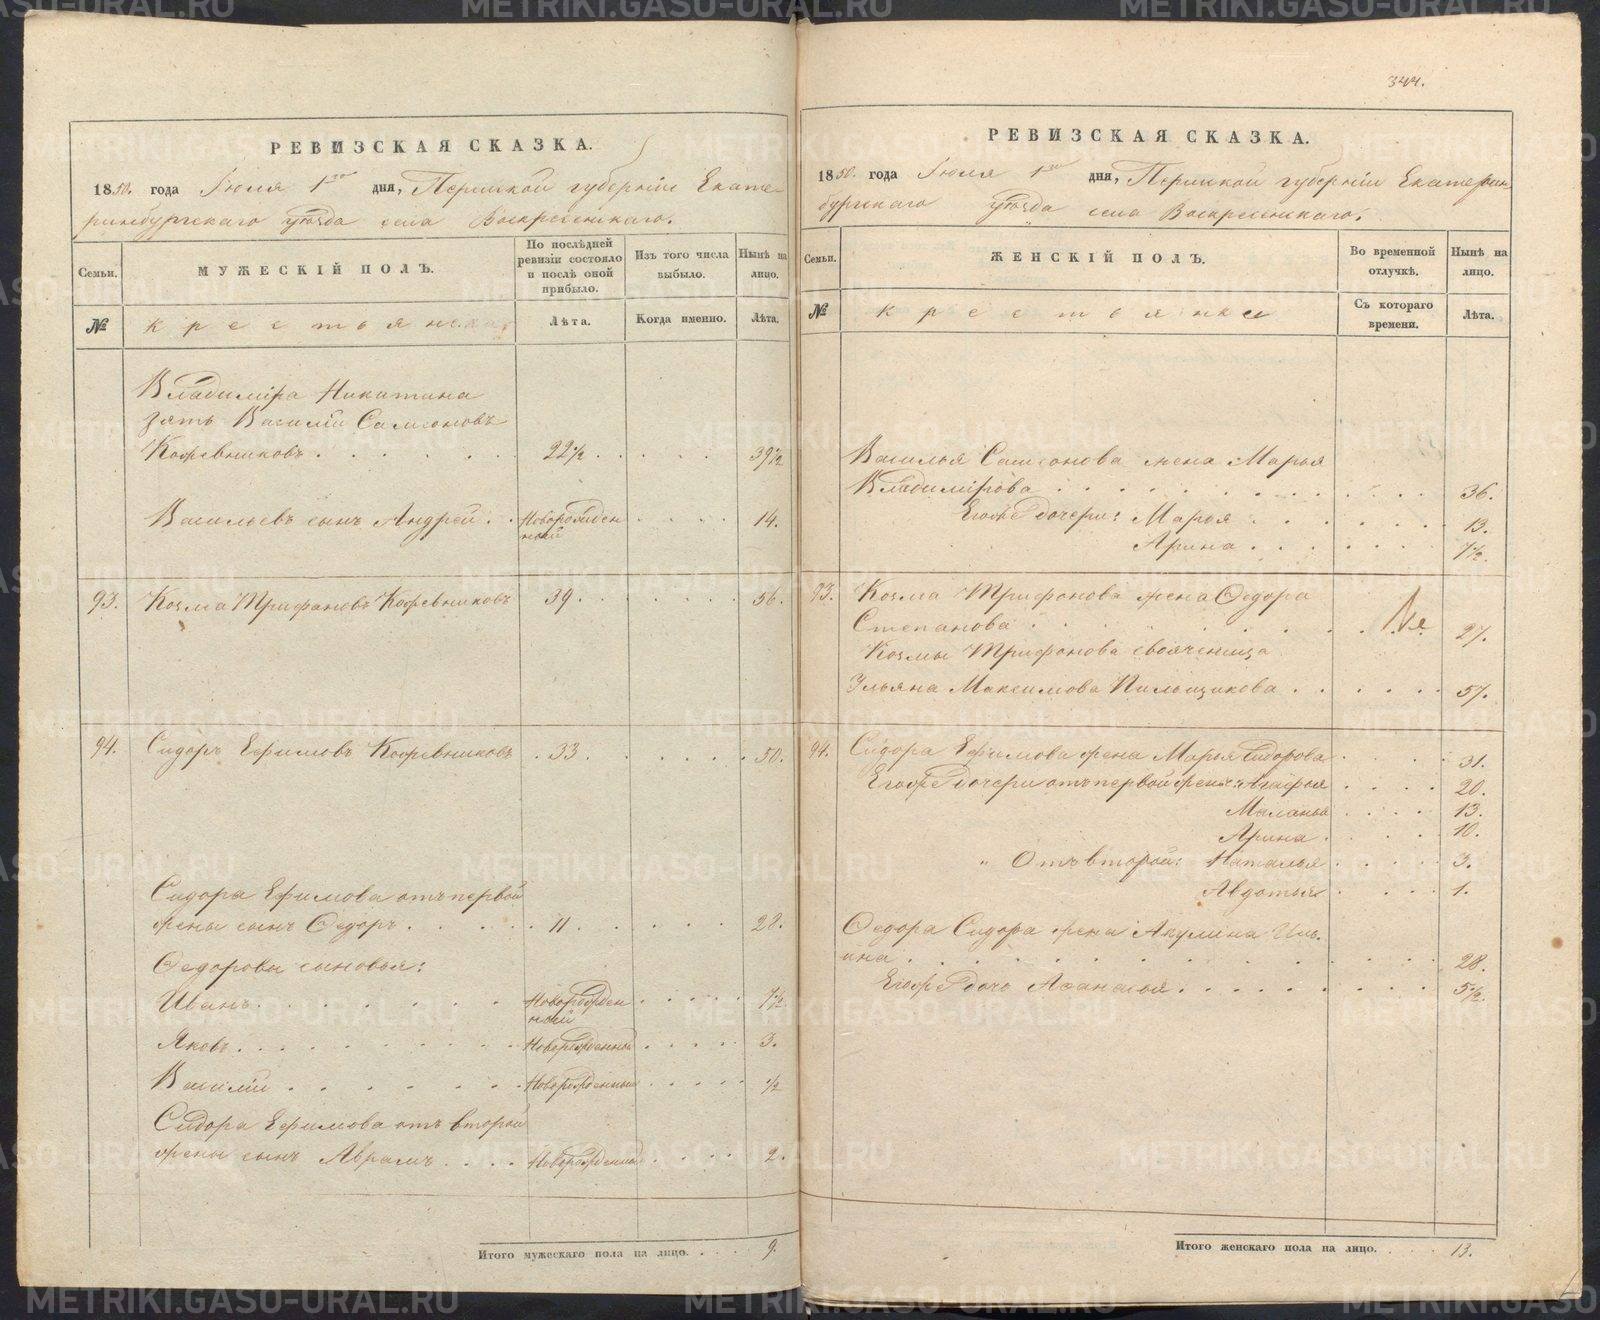 344.
РЕВИЗСКАЯ СКАЗКА.
1850. года Іюля 1го дня, Пермской губерніи Екате-
ринбургскаго уѣзда села Воскресенскаго.
Семьи. МУЖЕСКІЙ ПОЛЪ. По послѣдней ревизіи состояло и послѣ оной прибыло. Изъ того числа выбыло. Нынѣ на лицо.
№ крестьянска Лѣта. Когда именно. Лѣта.
Владиміра Никитина
зять Василій Самсоновъ
Кожевниковъ 22½ 39½
Васильевъ сынъ Андрей Новорожден
ный 14.
93. Козма Трифановъ Кожевниковъ 39 56.
94. Сидоръ Ефимовъ Кожевниковъ 33 50.
Сидора Ефимова отъ первой
жены сынъ Ѳедоръ 11 28.
Ѳедоровы сыновья:
Иванъ Новорожден
ный 7½
Яковъ Новорожденный 3.
Василій Новорожденный ½
Сидора Ефимова отъ второй
жены сынъ Аврамъ Новорожденный 2.
Итого мужескаго пола на лицо. 9.
РЕВИЗСКАЯ СКАЗКА.
1850. года Іюля 1го дня, Пермской губерніи Екатерин-
бургскаго уѣзда села Воскресенскаго.
Семьи. ЖЕНСКІЙ ПОЛЪ. Во временной отлучкѣ. Нынѣ на лицо.
№ крестьянки Съ котораго времени. Лѣта.
Василья Самсонова жена Марья
Владимірова 36.
Егожъ дочери: Марья 13.
Арина 7½.
93. Козма Трифонова жена Ѳедора
Степанова 27.
Козмы Трифонова своячница
Ульяна Максимова Пильщикова 57.
94. Сидора Ефимова жена Марья Сидорова 31.
Егожъ дочери отъ первой жены: Агафья 20.
Маланья 13.
Арина 10.
" Отъ второй: Наталья 3.
Авдотья 1.
Ѳедора Сидора жена Акулина Иль-
ина 28.
Егожъ дочь Афанасья 5½.
Итого женскаго пола на лицо. 13.